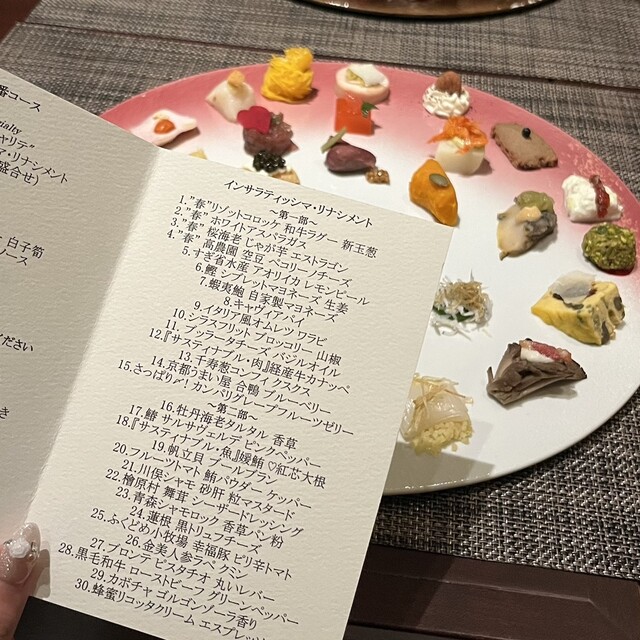 番コース
ialty
ャリテ”
マ・リナシメント
盛合せ)
白子筍
ソース
ださい
き
インサラティッシマ・リナシメント
～第一部～
1.”春”リゾットコロッケ 和牛ラグー 新玉葱
2.”春” ホワイトアスパラガス
3.”春” 桜海老 じゃが芋 エストラゴン
4.”春” 高農園 空豆 ペコリーノチーズ
5.すぎ省水産 アオリイカ レモンピール
6.鰹 シブレットマヨネーズ 生姜
7.蝦夷鮑 自家製マヨネーズ
8.キャヴィアパイ
9.イタリア風オムレツ ワラビ
10.シラスフリット ブロッコリー 山椒
11.ブッラータチーズ バジルオイル
12.『サスティナブル・肉』経産牛カナッペ
13.千寿葱コンフィ クスクス
14.京都うまい屋 合鴨 ブルーベリー
15.さっぱり〆! カンパリグレープフルーツゼリー
～第二部～
16.牡丹海老タルタル 香草
17.鰆 サルサヴェルデ ピンクペッパー
18.『サスティナブル・魚』媛鮪♡紅芯大根
19.帆立貝 ブールブラン
20.フルーツトマト 鮪パウダー ケッパー
21.川俣シャモ 砂肝 粒マスタード
22.檜原村 舞茸 シーザードレッシング
23.青森シャモロック 香草パン粉
24.蓮根 黒トリュフチーズ
25.ふくどめ小牧場 幸福豚 ピリ辛トマト
26.金美人参ラペ クミン
27.ブロンテ ピスタチオ 丸いレバー
28.黒毛和牛 ローストビーフ グリーンペッパー
29.カボチャ ゴルゴンゾーラ香り
30.蜂蜜リコッタクリーム エスプレッソ